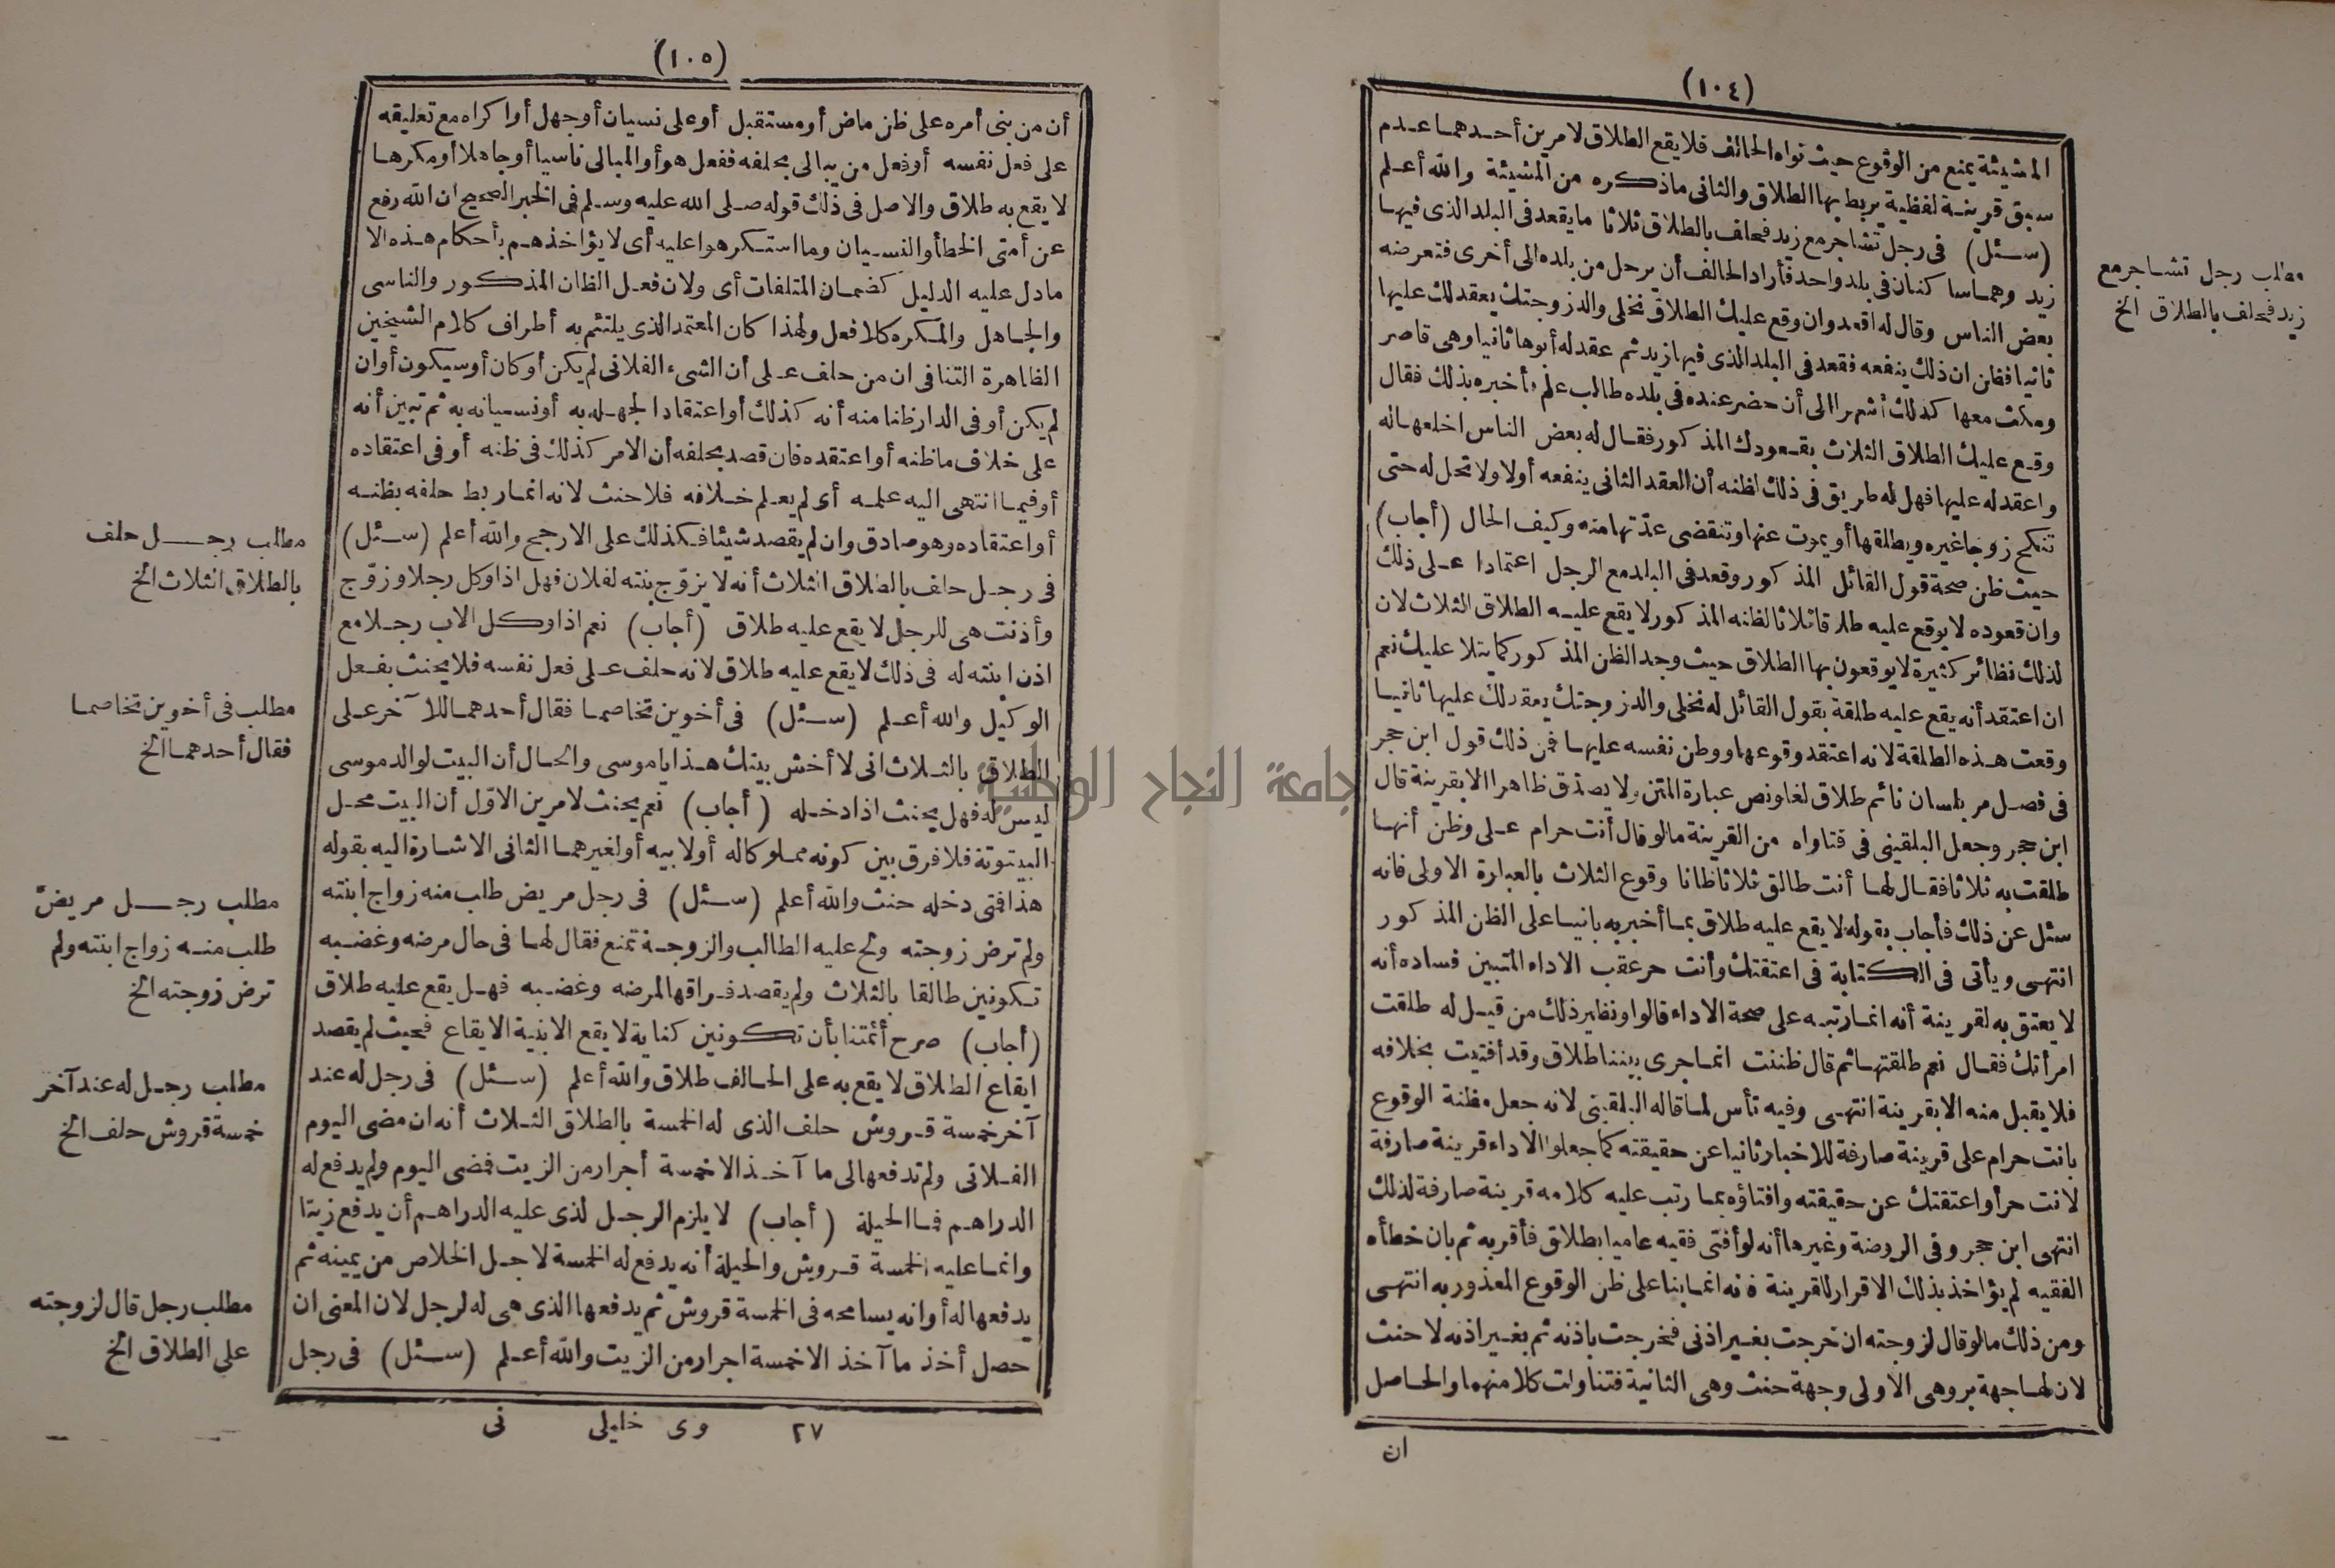 (١٠٤)
المشيئة يمنع من الوقوع حيث نواه الحالف فلا يقع الطلاق لامرين أحدهما عدم
سبق قرينة لفظية يربط بها الطلاق والثانى ماذكره من المشيئة والله أعلم
(سئل) فى رجل تشاجر مع زيد فحلف بالطلاق ثلاثا ما يقعد فى البلد الذى فيها
زيد وهما ساكنان فى بلد واحد فأراد الحالف أن يرحل من بلده الى أخرى فتعرضه
بعض الناس وقال له اقعد وان وقع عليك الطلاق نخلى والد زوجتك يعقد لك عليها
ثانيا فظن ان ذلك ينفعه فقعد فى البلد الذى فيها زيد ثم عقد له أبوها ثانيا وهى قاصر
ومكث معها كذلك أشهرا الى أن حضر عنده فى بلده طالب علم وأخبره بذلك فقال
وقع عليك الطلاق الثلاث بقعودك المذكور فقال له بعض الناس اخلعها له
واعقد له عليها فهل له طريق فى ذلك لظنه أن العقد الثانى ينفعه أولا ولا تحل له حتى
تنكح زوجا غيره ويطلقها أو يموت عنها وتنقضى عدّتها منه وكيف الحال (أجاب)
حيث ظن صحة قول القائل المذكور وقعد فى البلد مع الرجل اعتمادا على ذلك
وان قعوده لا يوقع عليه طلاقا ثلاثا لظنه المذكور لا يقع عليه الطلاق الثلاث لان
لذلك نظائر كثيرة لا يوقعون بها الطلاق حيث وجد الظن المذكور كما يتلا عليك نعم
ان اعتقد أنه يقع عليه طلقة بقول القائل له نخلى والد زوجتك يعقد لك عليها ثانيا
وقعت هذه الطلقة لانه اعتقد وقوعها ووطن نفسه عليها فمن ذلك قول ابن حجر
فى فصل مر بلسان نائم طلاق لغا ونص عبارة المتن ولا يصدّق ظاهرا الا بقرينة قال
ابن حجر وجعل البلقينى فى فتاواه من القرينة ما لو قال أنت حرام على وظن أنها
طلقت به ثلاثا فقال لها أنت طالق ثلاثا ظانا وقوع الثلاث بالعبارة الاولى فانه
سئل عن ذلك فأجاب بقوله لا يقع عليه طلاق بما أخبر به بانيا على الظن المذكور
انتهى ويأتى فى الكتابة فى اعتقتك وأنت حر عقب الاداء المتبين فساده أنه
لا يعتق به لقرينة أنه انما رتبه على صحة الاداء قالوا ونظير ذلك من قيل له طلقت
امرأتك فقال نعم طلقتها ثم قال ظننت انما جرى بيننا طلاق وقد أفتيت بخلافه
فلا يقبل منه الا بقرينة انتهى وفيه تأس لما قاله البلقينى لانه جعل مظنة الوقوع
بانت حرام على قرينة صارفة للاخبار ثانيا عن حقيقته كما جعلوا الاداء قرينة صارفة
لانت حر أو اعتقتك عن حقيقته وافتاؤه بما رتب عليه كلامه قرينة صارفة لذلك
انتهى ابن حجر وفى الروضة وغيرها أنه لو أفتى فقيه عاميا بطلاق فأقر به ثم بان خطأه
الفقيه لم يؤاخذ بذلك الاقرار للقرينة فانه انما بنا على ظن الوقوع المعذور به انتهى
ومن ذلك ما لو قال لزوجته ان خرجت بغير اذنى فخرجت باذنه ثم بغير اذنه لا حنث
لان لها جهة بر وهى الاولى وجهة حنث وهى الثانية فتناولت كلا منهما والحاصل
ان
مطلب رجل تشاجر مع
زيد فحلف بالطلاق الخ
(١٠٥)
أن من بنى أمره على ظن ماض أو مستقبل أو على نسيان أو جهل أو اكراه مع تعليقه
على فعل نفسه أو فعل من يبالى بحلفه ففعل هو أو المبالى ناسيا أو جاهلا أو مكرها
لا يقع به طلاق والاصل فى ذلك قوله صلى الله عليه وسلم فى الخبر الصحيح ان الله رفع
عن أمتى الخطأ والنسيان وما استكرهوا عليه أى لا يؤاخذهم بأحكام هذه الا
ما دل عليه الدليل كضمان المتلفات أى ولان فعل الظان المذكور والناسى
والجاهل والمكره كلا فعل ولهذا كان المعتمد الذى يلتئم به أطراف كلام الشيخين
الظاهرة التنافى ان من حلف على أن الشىء الفلانى لم يكن أو كان أو سيكون أو ان
لم يكن أو فى الدار ظنا منه أنه كذلك أو اعتقادا لجهله به أو نسيانه به ثم تبين أنه
على خلاف ما ظنه أو اعتقده فان قصد بحلفه أن الامر كذلك فى ظنه أو فى اعتقاده
أو فيما انتهى اليه علمه أى لم يعلم خلافه فلا حنث لانه انما ربط حلفه بظنه
أو اعتقاده وهو صادق وان لم يقصد شيئا فكذلك على الارجح والله أعلم (سئل)
فى رجل حلف بالطلاق الثلاث أنه لا يزوّج بنته لفلان فهل اذا وكل رجلا وزوّج
وأذنت هى للرجل لا يقع عليه طلاق (أجاب) نعم اذا وكل الاب رجلا مع
اذن ابنته له فى ذلك لا يقع عليه طلاق لانه حلف على فعل نفسه فلا يحنث بفعل
الوكيل والله أعلم (سئل) فى أخوين تخاصما فقال أحدهما للآخر على
الطلاق بالثلاث انى لا أخش بيتك هذا ياموسى والحال أن البيت لوالد موسى
ليس له فهل يحنث اذا دخله (أجاب) نعم يحنث لامرين الاوّل أن البيت محل
البيتوتة فلا فرق بين كونه مملوكا له أو لابيه أو لغيرهما الثانى الاشارة اليه بقوله
هذا فتى دخله حنث والله أعلم (سئل) فى رجل مريض طلب منه زواج ابنته
ولم ترض زوجته ولح عليه الطالب والزوجة تمنع فقال لها فى حال مرضه وغضبه
تكونين طالقا بالثلاث ولم يقصد فراقها لمرضه وغضبه فهل يقع عليه طلاق
(أجاب) صرح أئمتنا بأن تكونين كناية لا يقع الا بنية الايقاع فحيث لم يقصد
ايقاع الطلاق لا يقع به على الحالف طلاق والله أعلم (سئل) فى رجل له عند
آخر خمسة قروش حلف الذى له الخمسة بالطلاق الثلاث أنه ان مضى اليوم
الفلانى ولم تدفعها لى ما آخذ الا خمسة أجرار من الزيت فمضى اليوم ولم يدفع له
الدراهم فما الحيلة (أجاب) لا يلزم الرجل لذى عليه الدراهم أن يدفع زيتا
وانما عليه الخمسة قروش والحيلة أنه يدفع له الخمسة لاجل الخلاص من يمينه ثم
يدفعها له أو انه يسامحه فى الخمسة قروش ثم يدفعها الذى هى له لرجل لان المعنى ان
حصل أخذ ما آخذ الا خمسة اجرار من الزيت والله أعلم (سئل) فى رجل
٢٧ وى خليلى فى
مطلب رجل حلف
بالطلاق الثلاث الخ
مطلب فى أخوين تخاصما
فقال أحدهما الخ
مطلب رجل مريض
طلب منه زواج ابنته ولم
ترض زوجته الخ
مطلب رجل له عند آخر
خمسة قروش حلف الخ
مطلب رجل قال لزوجته
على الطلاق الخ
جامعة النجاح الوطنية